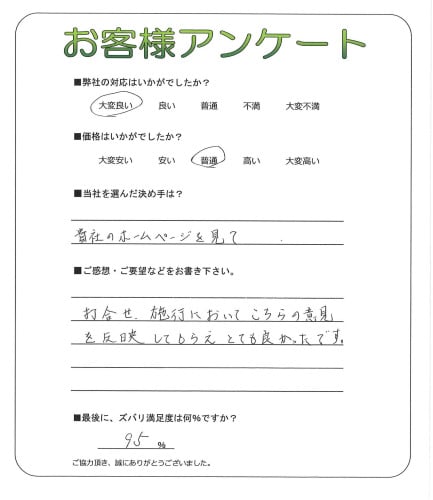 お客様アンケート
■弊社の対応はいかがでしたか?
大変良い 良い 普通 不満 大変不満
■価格はいかがでしたか?
大変安い 安い 普通 高い 大変高い
■当社を選んだ決め手は?
貴社のホームページを見て
■ご感想・ご要望などをお書き下さい。
打合せ、施行において こちらの意見
を反映してもらえ とても良かったです。
■最後に、ズバリ満足度は何%ですか?
95 %
ご協力頂き、誠にありがとうございました。